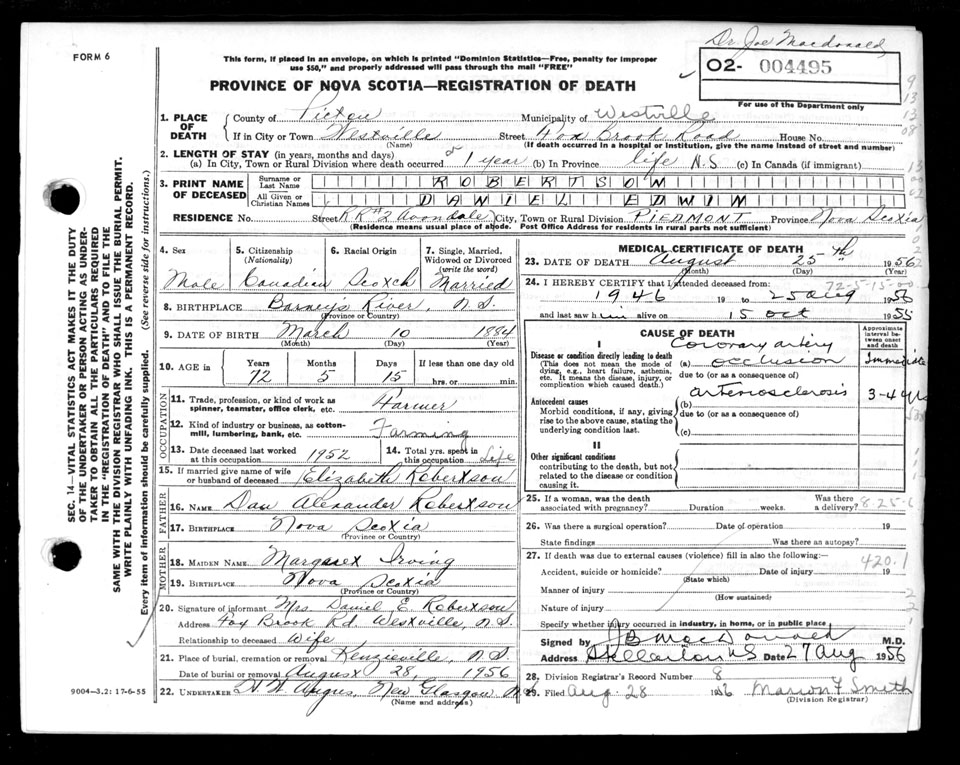 FORM 6
Dr. Joe Macdonald
This form, if placed in an envelope, on which is printed "Dominion Statistics—Free, penalty for improper
use $50," and properly addressed will pass through the mail "FREE"
02- 004495
For use of the Department only
PROVINCE OF NOVA SCOTIA—REGISTRATION OF DEATH
1. PLACE OF DEATH
County of Pictou Municipality of Westville
If in City or Town Westville Street Fox Brook Road House No.
(Name) (If death occurred in a hospital or institution, give the name instead of street and number)
2. LENGTH OF STAY (in years, months and days)
(a) In City, Town or Rural Division where death occurred 1 year (b) In Province life N.S (c) In Canada (if immigrant)
3. PRINT NAME OF DECEASED
Surname or Last Name ROBERTSON
All Given or Christian Names DANIEL EDWIN
RESIDENCE No. Street RR#2 Avondale City, Town or Rural Division PIEDMONT Province Nova Scotia
(Residence means usual place of abode. Post Office Address for residents in rural parts not sufficient)
4. Sex Male
5. Citizenship (Nationality) Canadian
6. Racial Origin Scotch
7. Single, Married, Widowed or Divorced (write the word) Married
8. BIRTHPLACE Barney's River, N.S.
(Province or Country)
9. DATE OF BIRTH March 10 1884
(Month) (Day) (Year)
10. AGE in Years 72 Months 5 Days 15 If less than one day old hrs. or min.
OCCUPATION
11. Trade, profession, or kind of work as spinner, teamster, office clerk, etc. Farmer
12. Kind of industry or business, as cotton-mill, lumbering, bank, etc. Farming
13. Date deceased last worked at this occupation 1952
14. Total yrs. spent in this occupation Life
15. If married give name of wife or husband of deceased Elizabeth Robertson
FATHER
16. NAME Dan Alexander Robertson
17. BIRTHPLACE Nova Scotia
(Province or Country)
MOTHER
18. MAIDEN NAME Margaret Irving
19. BIRTHPLACE Nova Scotia
(Province or Country)
20. Signature of informant Mrs. Daniel E. Robertson
Address Fox Brook Rd. Westville, N.S.
Relationship to deceased Wife
21. Place of burial, cremation or removal Kenzieville, N.S.
Date of burial or removal August 28, 1956
22. UNDERTAKER Angus, New Glasgow
(Name and address)
MEDICAL CERTIFICATE OF DEATH
23. DATE OF DEATH August 25th 1956
(Month) (Day) (Year)
24. I HEREBY CERTIFY that I attended deceased from: 72-5-15-00
1946 19 to 25 Aug 1956
and last saw him alive on 15 Oct 1955
CAUSE OF DEATH
Approximate interval between onset and death
I
Disease or condition directly leading to death
(This does not mean the mode of dying, e.g., heart failure, asthenia, etc. It means the disease, injury, or complication which caused death.)
(a) Coronary artery occlusion Immediate
due to (or as a consequence of)
Antecedent causes
Morbid conditions, if any, giving rise to the above cause, stating the underlying condition last.
(b) arteriosclerosis 3-4 yrs
due to (or as a consequence of)
(c)
II
Other significant conditions
contributing to the death, but not related to the disease or condition causing it.
25. If a woman, was the death associated with pregnancy? Duration weeks. Was there a delivery? 8-25-6
26. Was there a surgical operation? Date of operation 19
State findings Was there an autopsy?
27. If death was due to external causes (violence) fill in also the following:— 420.1
Accident, suicide or homicide? Date of injury 19
(State which)
Manner of injury
(How sustained)
Nature of injury
Specify whether injury occurred in industry, in home, or in public place
Signed by JB MacDonald M.D.
Address Stellarton NS Date 27 Aug 1956
28. Division Registrar's Record Number 8
29. Filed Aug. 28 1956 Marion F Smith
(Division Registrar)
SEC. 14—VITAL STATISTICS ACT MAKES IT THE DUTY
OF THE UNDERTAKER OR PERSON ACTING AS UNDER-
TAKER TO OBTAIN ALL THE PARTICULARS REQUIRED
IN THE "REGISTRATION OF DEATH" AND TO FILE THE
SAME WITH THE DIVISION REGISTRAR WHO SHALL ISSUE THE BURIAL PERMIT.
WRITE PLAINLY WITH UNFADING INK. THIS IS A PERMANENT RECORD.
Every item of information should be carefully supplied. (See reverse side for instructions.)
9004-3.2: 17-6-55